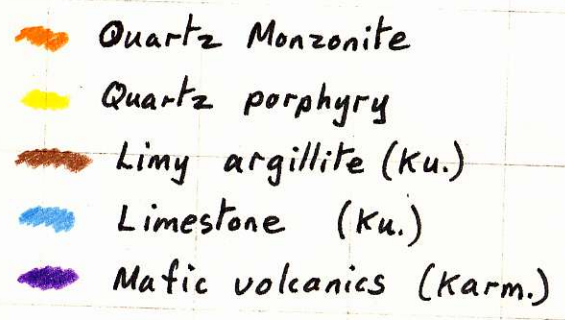 Quartz Monzonite
Quartz porphyry
Limy argillite (Ku.)
Limestone (Ku.)
Mafic volcanics (Karm.)